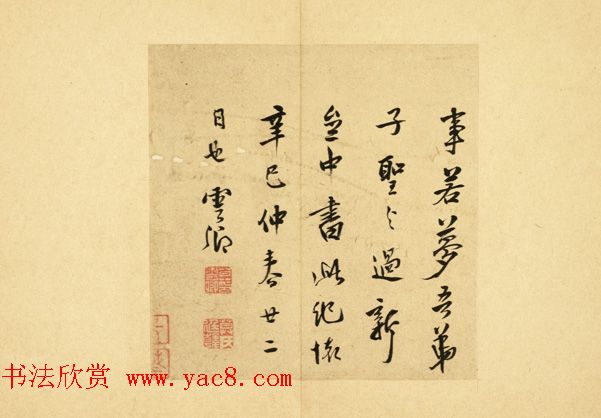 事若夢吾弟
子聖之過新
中書此紀懷
辛巳仲春廿二
日也雲卿
书法欣赏 www.yac8.com